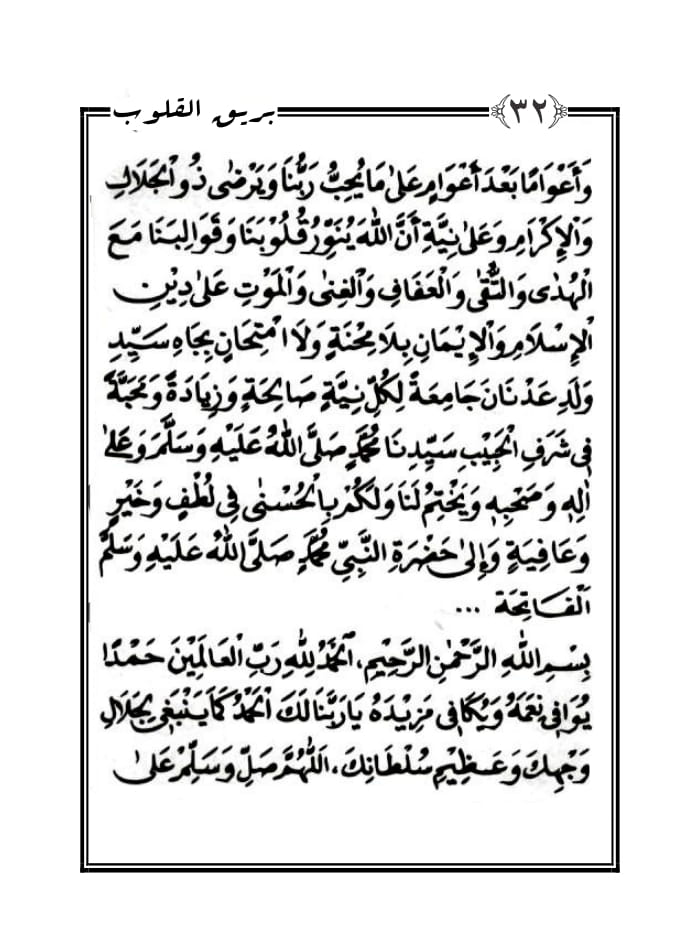 بريق القلوب
٣٢
وَأَعْوَامًا بَعْدَ أَعْوَامٍ عَلىٰ مَا يُحِبُّ رَبُّنَا وَيَرْضٰى ذُو الْجَلَالِ
وَالْإِكْرَامِ وَعَلىٰ نِيَّةِ أَنَّ اللهَ يُنَوِّرُ قُلُوْبَنَا وَقَوَالِبَنَا مَعَ
الْهُدٰى وَالتُّقٰى وَالْعَفَافِ وَالْغِنٰى وَالْمَوْتِ عَلىٰ دِيْنِ
الْإِسْلَامِ وَالْإِيْمَانِ بِلَا مِحْنَةٍ وَلَا امْتِحَانٍ بِجَاهِ سَيِّدِ
وَلَدِ عَدْنَانَ جَامِعَةً لِكُلِّ نِيَّةٍ صَالِحَةٍ وَزِيَادَةً وَمَحَبَّةً
فِي شَرَفِ الْحَبِيْبِ سَيِّدِنَا مُحَمَّدٍ صَلَّى اللهُ عَلَيْهِ وَسَلَّمَ وَعَلىٰ
اٰلِهٖ وَصَحْبِهٖ وَيَخْتِمُ لَنَا وَلَكُمْ بِالْحُسْنٰى فِي لُطْفٍ وَخَيْرٍ
وَعَافِيَةٍ وَإِلىٰ حَضْرَةِ النَّبِيِّ مُحَمَّدٍ صَلَّى اللهُ عَلَيْهِ وَسَلَّمَ
اَلْفَاتِحَة ...
بِسْمِ اللهِ الرَّحْمٰنِ الرَّحِيْمِ، اَلْحَمْدُ لِلهِ رَبِّ الْعَالَمِيْنَ حَمْدًا
يُوَافِي نِعَمَهُ وَيُكَافِي مَزِيْدَهُ يَا رَبَّنَا لَكَ الْحَمْدُ كَمَا يَنْبَغِي لِجَلَالِ
وَجْهِكَ وَعَظِيْمِ سُلْطَانِكَ، اَللّٰهُمَّ صَلِّ وَسَلِّمْ عَلىٰ